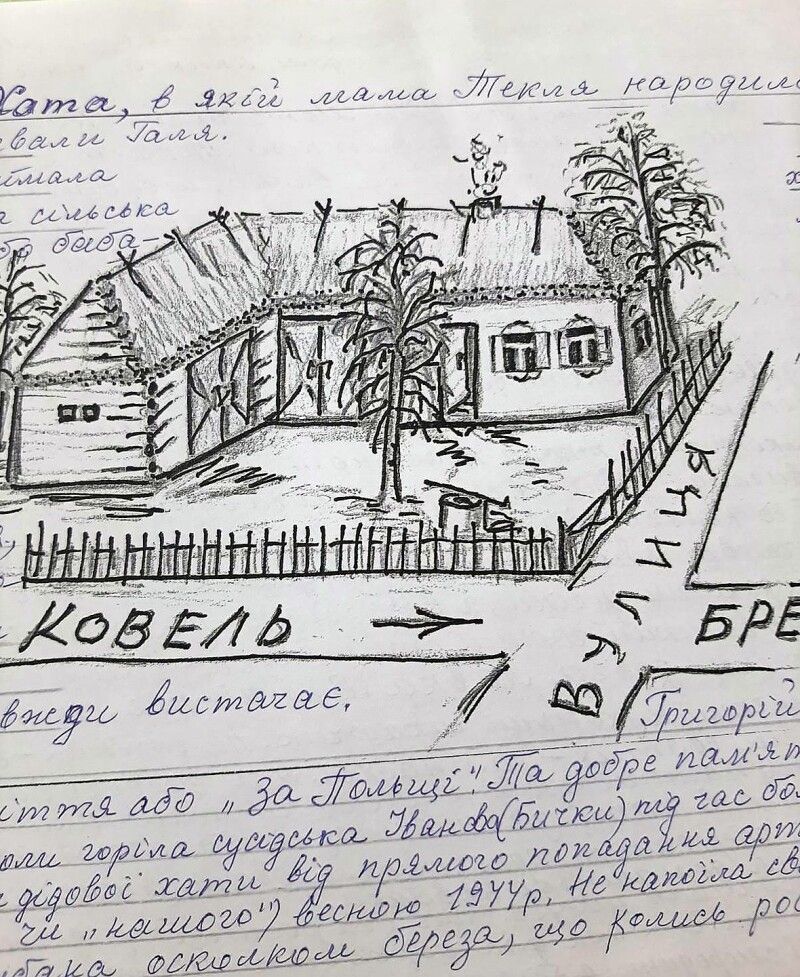 Хата, в якій мама Текля народила
вали Галя.
ймала
а сільська
бо баба-
КОВЕЛЬ
Вулиця
БРЕ
вжди вистачає.
Григорій
іття або „За Польщі". Та добре пам'ят
оли горіла сусідська Іванова (Бички) під час бо
дідової хати від прямого попадання арт
чи „нашого") весною 1944р. Не напоїла св
осколком береза, що колись рос